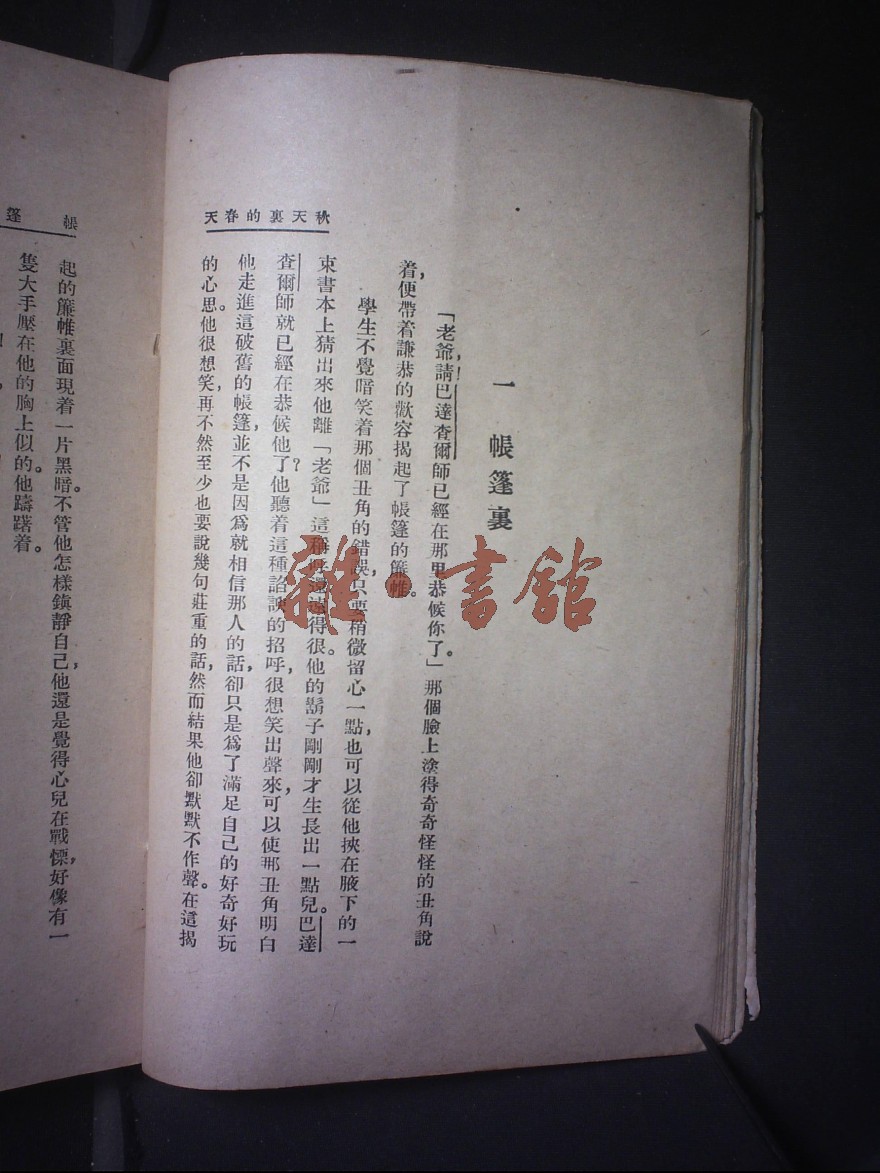 秋天裏的春天
一 帳篷裏
「老爺，請！巴達查爾師已經在那里恭候你了。」那個臉上塗得奇奇怪怪的丑角說
着，便帶着謙恭的歡容揭起了帳篷的簾帷。
學生不覺暗笑着那個丑角的錯誤，只要稍微留心一點，也可以從他挾在腋下的一
束書本上猜出來他離「老爺」這稱呼還遠得很。他的鬍子剛剛才生長出一點兒。巴達
查爾師就已經在恭候他了？他聽着這種諂諛的招呼，很想笑出聲來，可以使那丑角明白
他走進這破舊的帳篷，並不是因爲就相信那人的話，卻只是爲了滿足自己的好奇好玩
的心思。他很想笑，再不然至少也要說幾句莊重的話，然而結果他卻默默不作聲。在這揭
帳篷
起的簾帷裏面現着一片黑暗。不管他怎樣鎮靜自己，他還是覺得心兒在戰慄，好像有一
隻大手壓在他的胸上似的。他躊躇着。
雜·書館